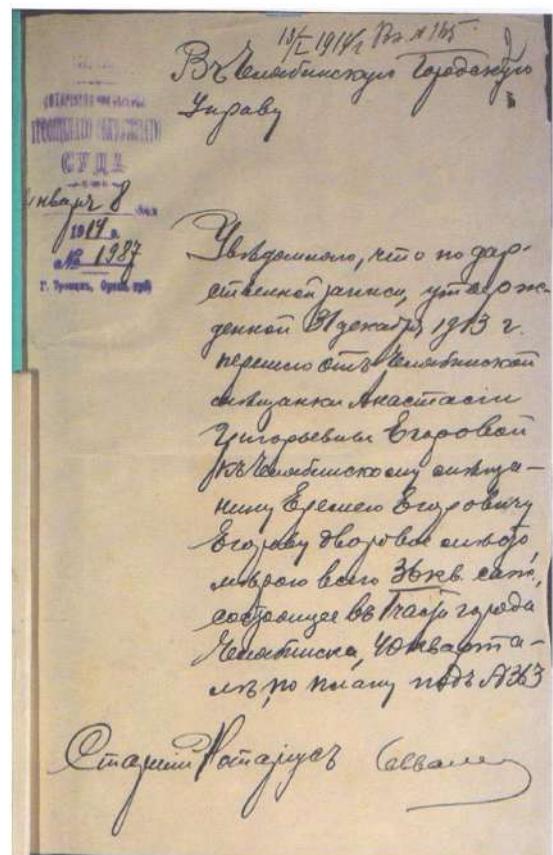 13/I 1914 г. Вх. № 165
Въ Челябинскую Городскую
Управу
ТРОИЦКАГО ОКРУЖНАГО
СУДА
Января 8 дня
1914 г.
№ 1987
Г. Троицкъ, Оренб. губ.
Увѣдомляю, что по дар-
ственной записи, утверж-
денной 31 декабря 1913 г.
перешло отъ Челябинской
мѣщанки Анастасіи
Григорьевны Егоровой
къ Челябинскому мѣща-
нину Еремею Егоровичу
Егорову дворовое мѣсто
мѣрою всего 36 кв. саж.,
состоящее въ I части города
Челябинска, 40 кварта-
лѣ, по плану подъ № 363
Старшій Нотаріусъ